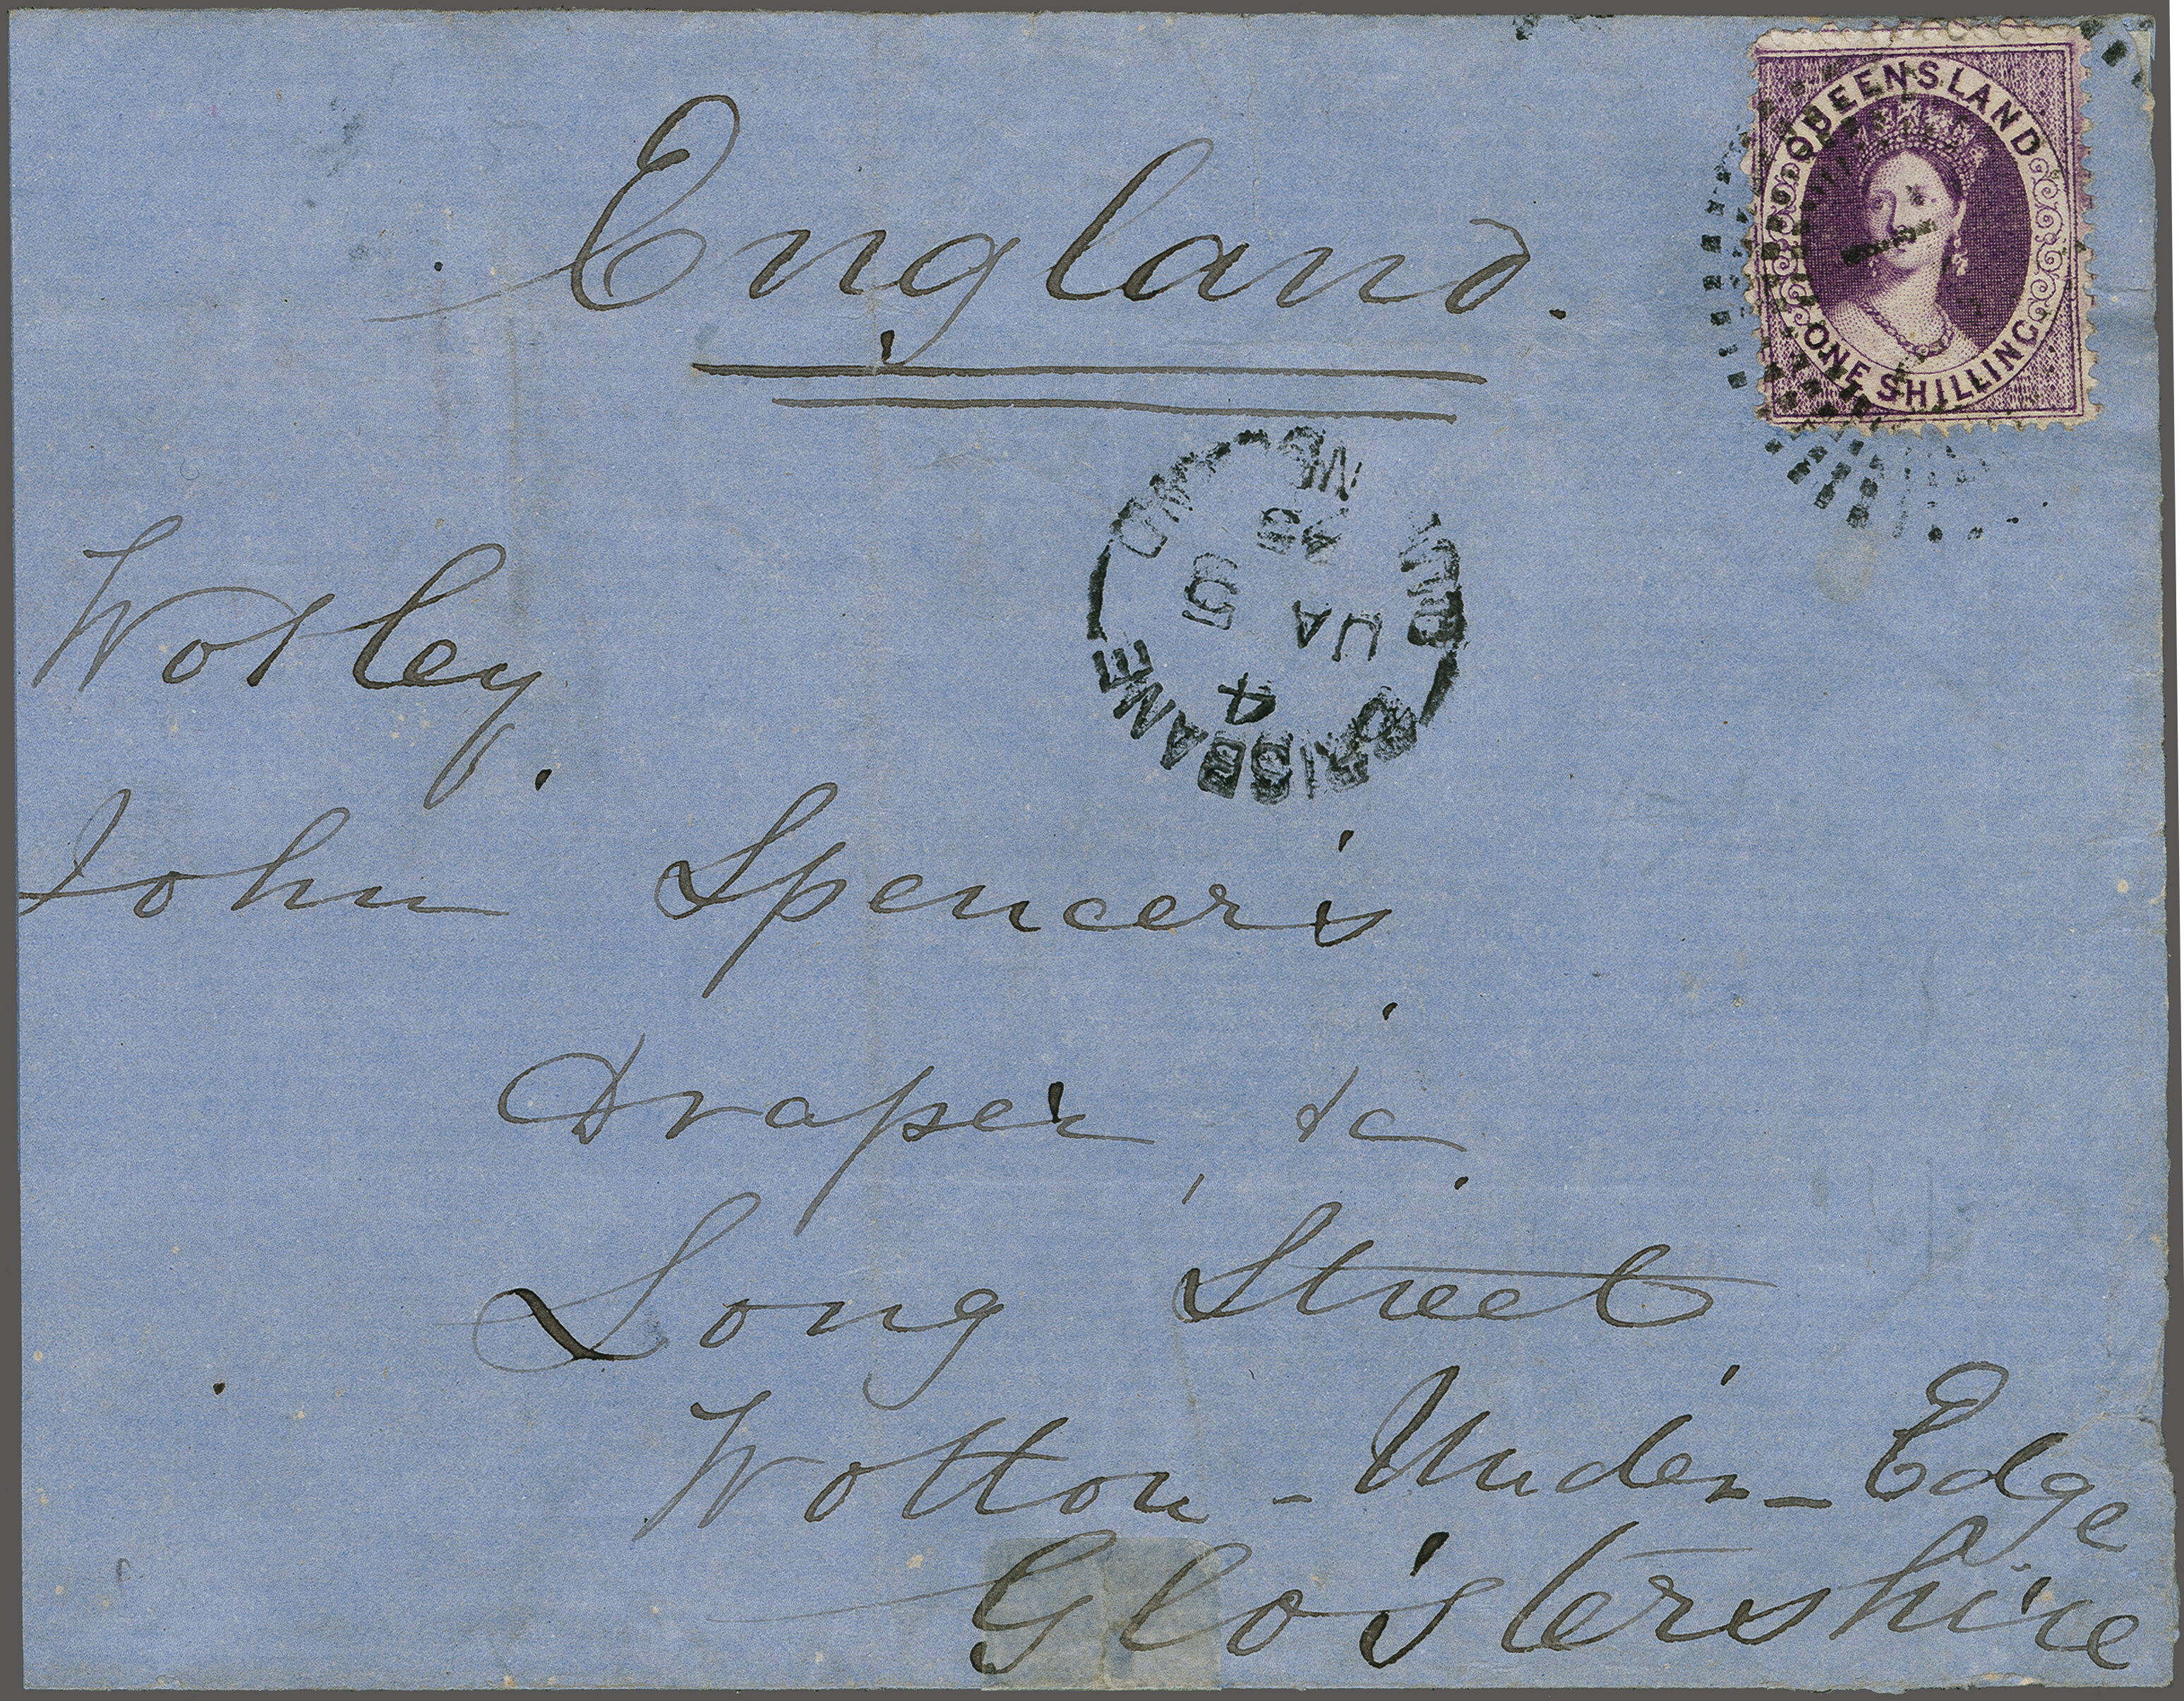 QUEENSLAND
ONE SHILLING
England.
BRISBANE
QUEENSLAND
4
JA 5
Wotley
John Spencer's
Draper &c
Long Street
Wotton - Under - Edge
Glo'stershire